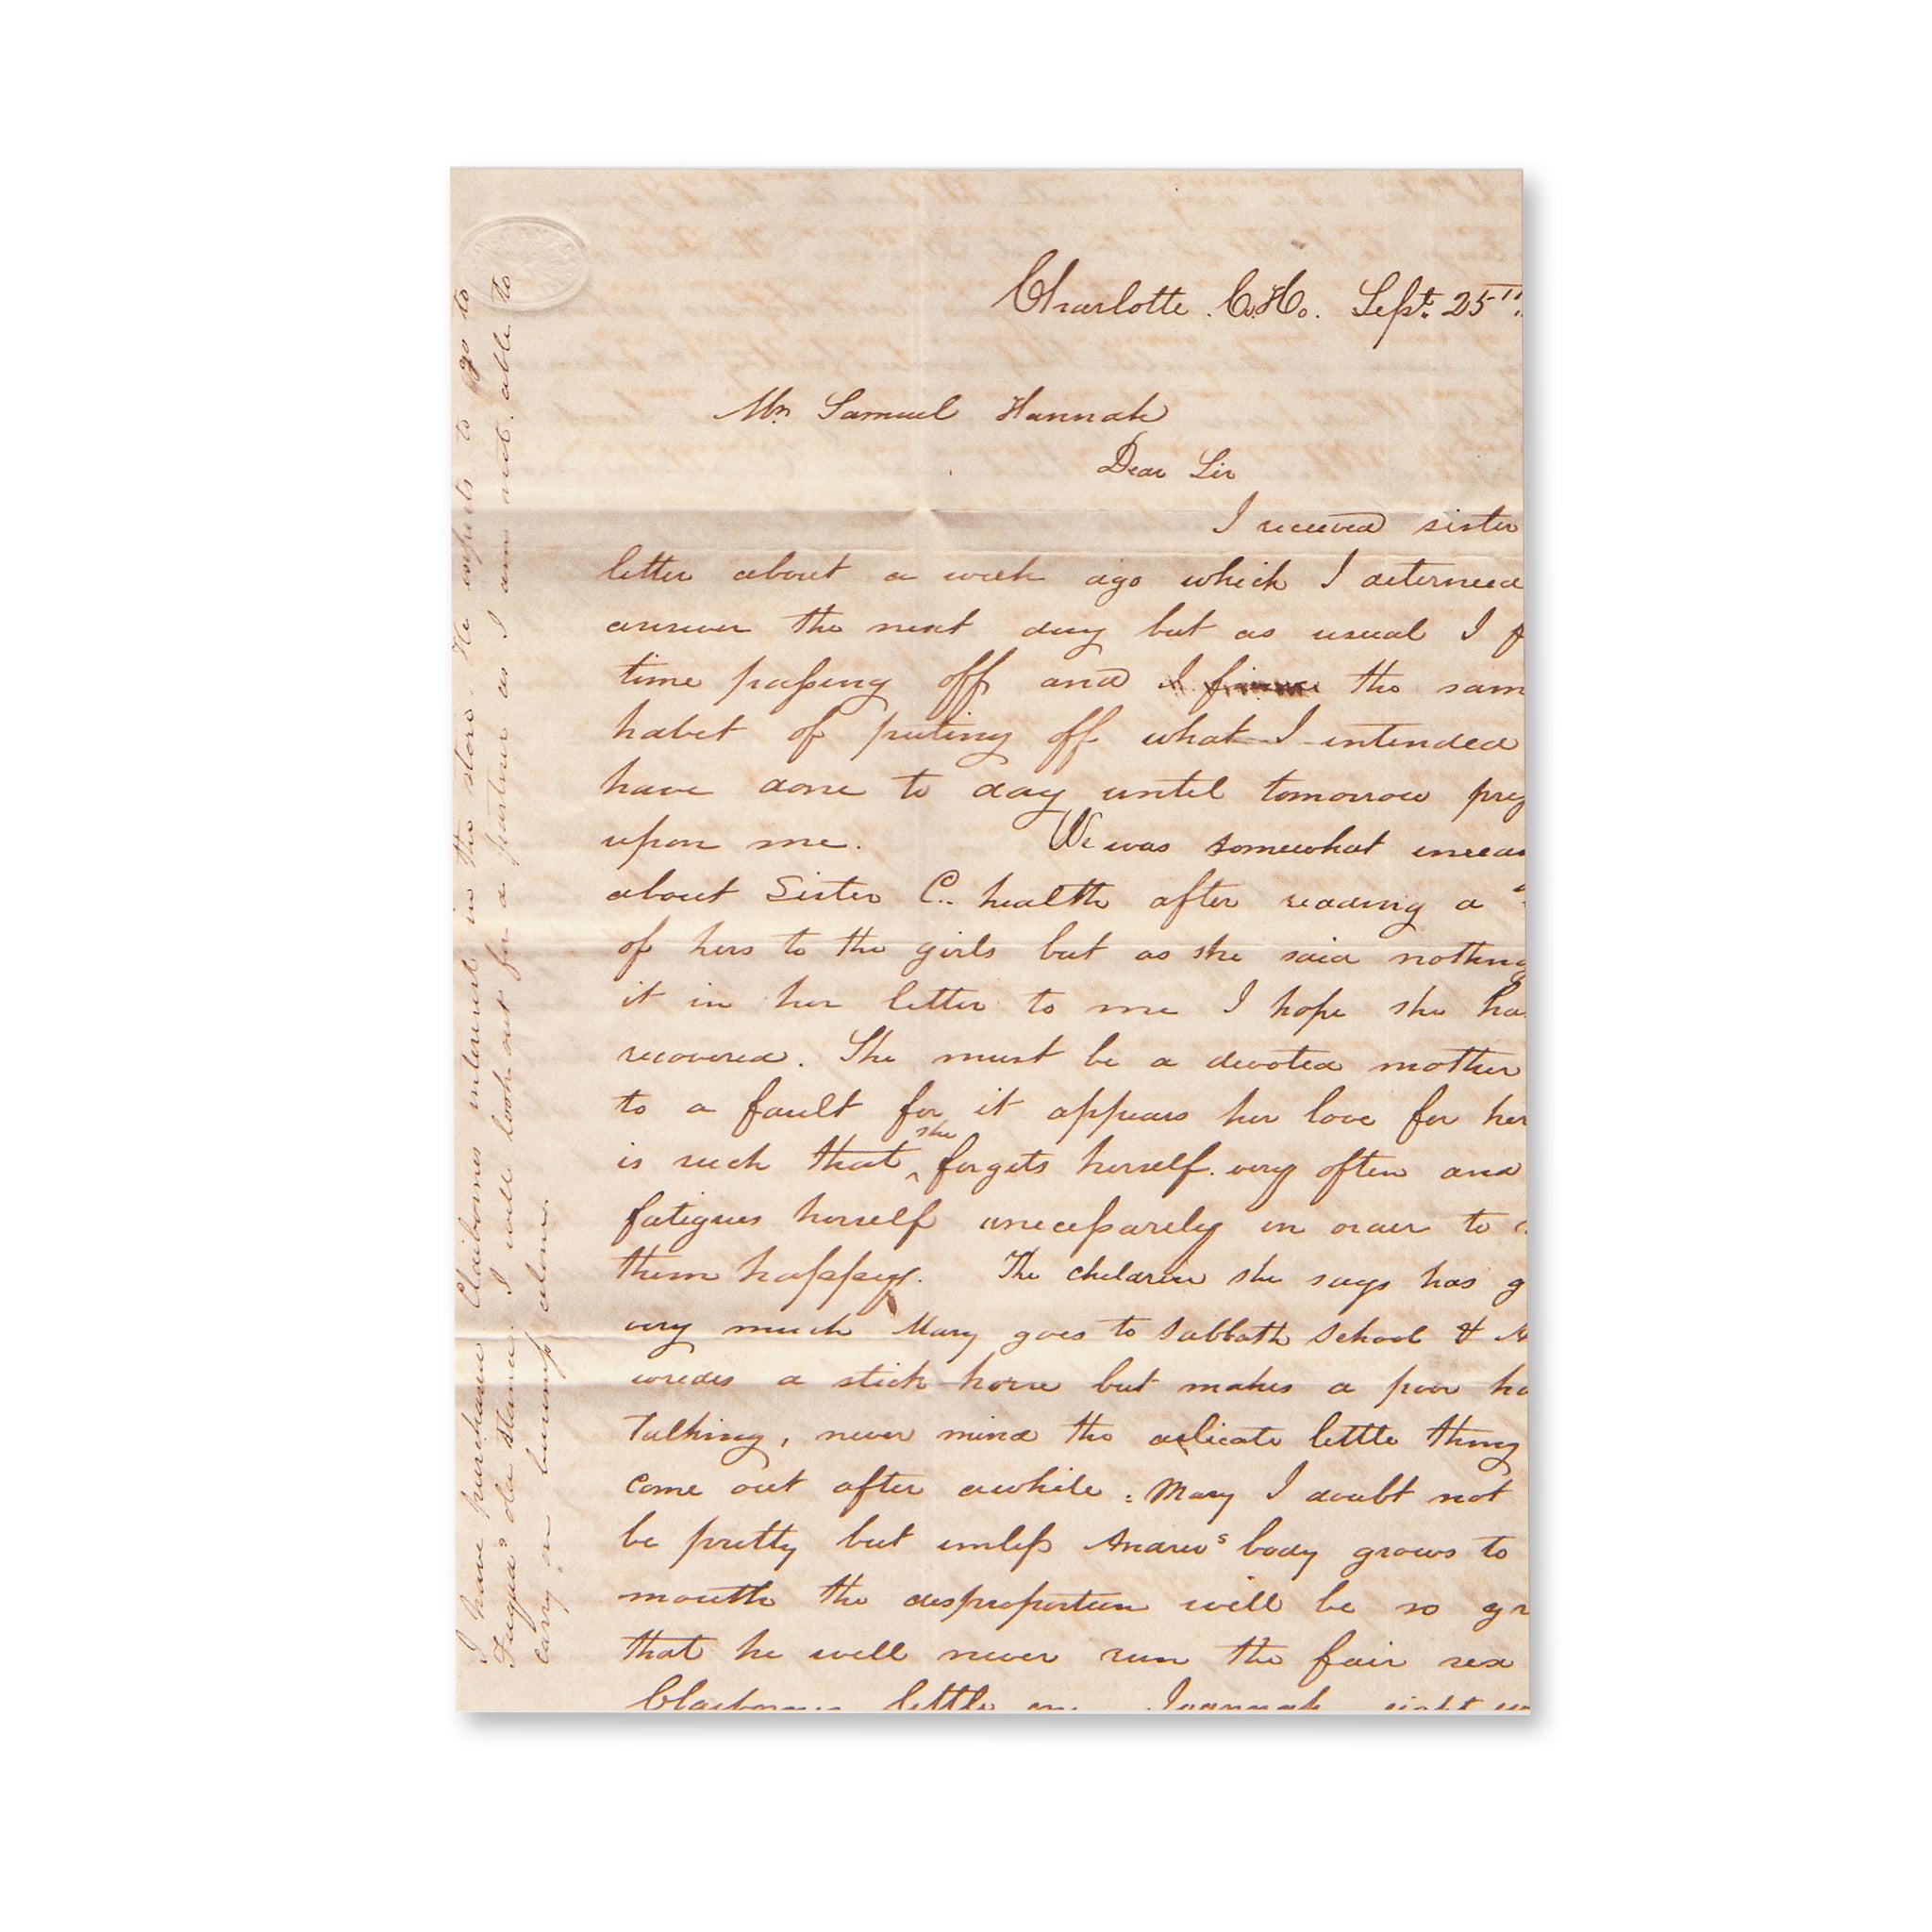 Charlotte C.H. Sept. 25
Mr. Samuel Hannah
Dear Sir
I received sister
letter about a week ago which I determed
answer the next day but as usual I f
time passing off and I the sam
habet of puting off what I intended
have done to day untel tomorrow prey
upon me. We was somewhat uneas
about Sister C. health after reading a
of hers to the girls but as she said nothing
it in her letter to me I hope she ha
recovered. She must be a devoted mother
to a fault for it appears her love for her
is such that she forgets herself very often and
fatigues herself unecessarely in order to
them happy. The children she says has g
very much Mary goes to Sabbath School & A
a stick horse but makes a poor ha
talking, never mind the delicate little thing
come out after awhile. Mary I doubt not
be pretty but unless Andrews body grows to
mouth the desproportion will be so gr
that he well never run the fair sex
Claibornes little one Joannah eight
I have purchased Claibornes interest in the store. He expects to go to
Fuqua's old stand. I will look out for a partner as I am not able to
carry on buisness alone.